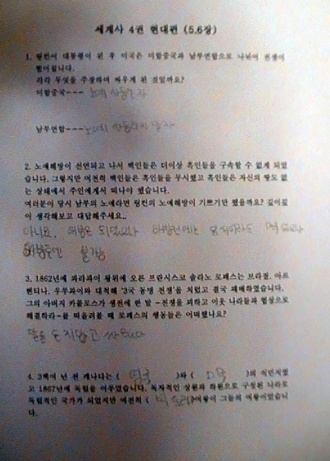 세계사 4권 현대편 (5.6장)
1. 링컨이 대통령이 된 후 미국은 미합중국과 남부연합으로 나뉘어 전쟁이
벌어집니다.
각각 무엇을 주장하며 싸우게 된 것일까요?
미합중국---
남부연합---
2. 노예해방이 선언되고 나서 백인들은 더이상 흑인들을 구속할 수 없게 되었
습니다. 그렇지만 여전히 백인들은 흑인들을 무시했고 흑인들은 자신의 땅도 없
는 상태에서 주인에게서 떠나야 했습니다.
여러분이 당시 남부의 노예라면 링컨의 노예해방이 기쁘기만 했을까요? 깊이있
이 생각해보고 대답해주세요..
아니요,
3. 1862년에 파라과이 왕위에 오른 프란시스코 솔라노 로페스는 브라질, 아르
헨티나, 우루과이와 대적해 '3국 동맹 전쟁'을 치렀고 결국 패배하였습니다.
그의 아버지 카를로스가 생전에 한 말 -전쟁을 피하고 이웃 나라들과 협상으로
해결하라-를 떠올려볼 때 로페스의 행동들은 어떠했나요?
말을 듣지않고 싸웠다
4. 3백여 년 전 캐나다는 ( 영국 )와 ( )의 식민지였
고 1867년에 독립을 이루었습니다. 독자적인 상원과 하원으로 구성된 나라로
독립적인 국가가 되었지만 여전히 ( )여왕이 그들의 여왕이었습니
다.